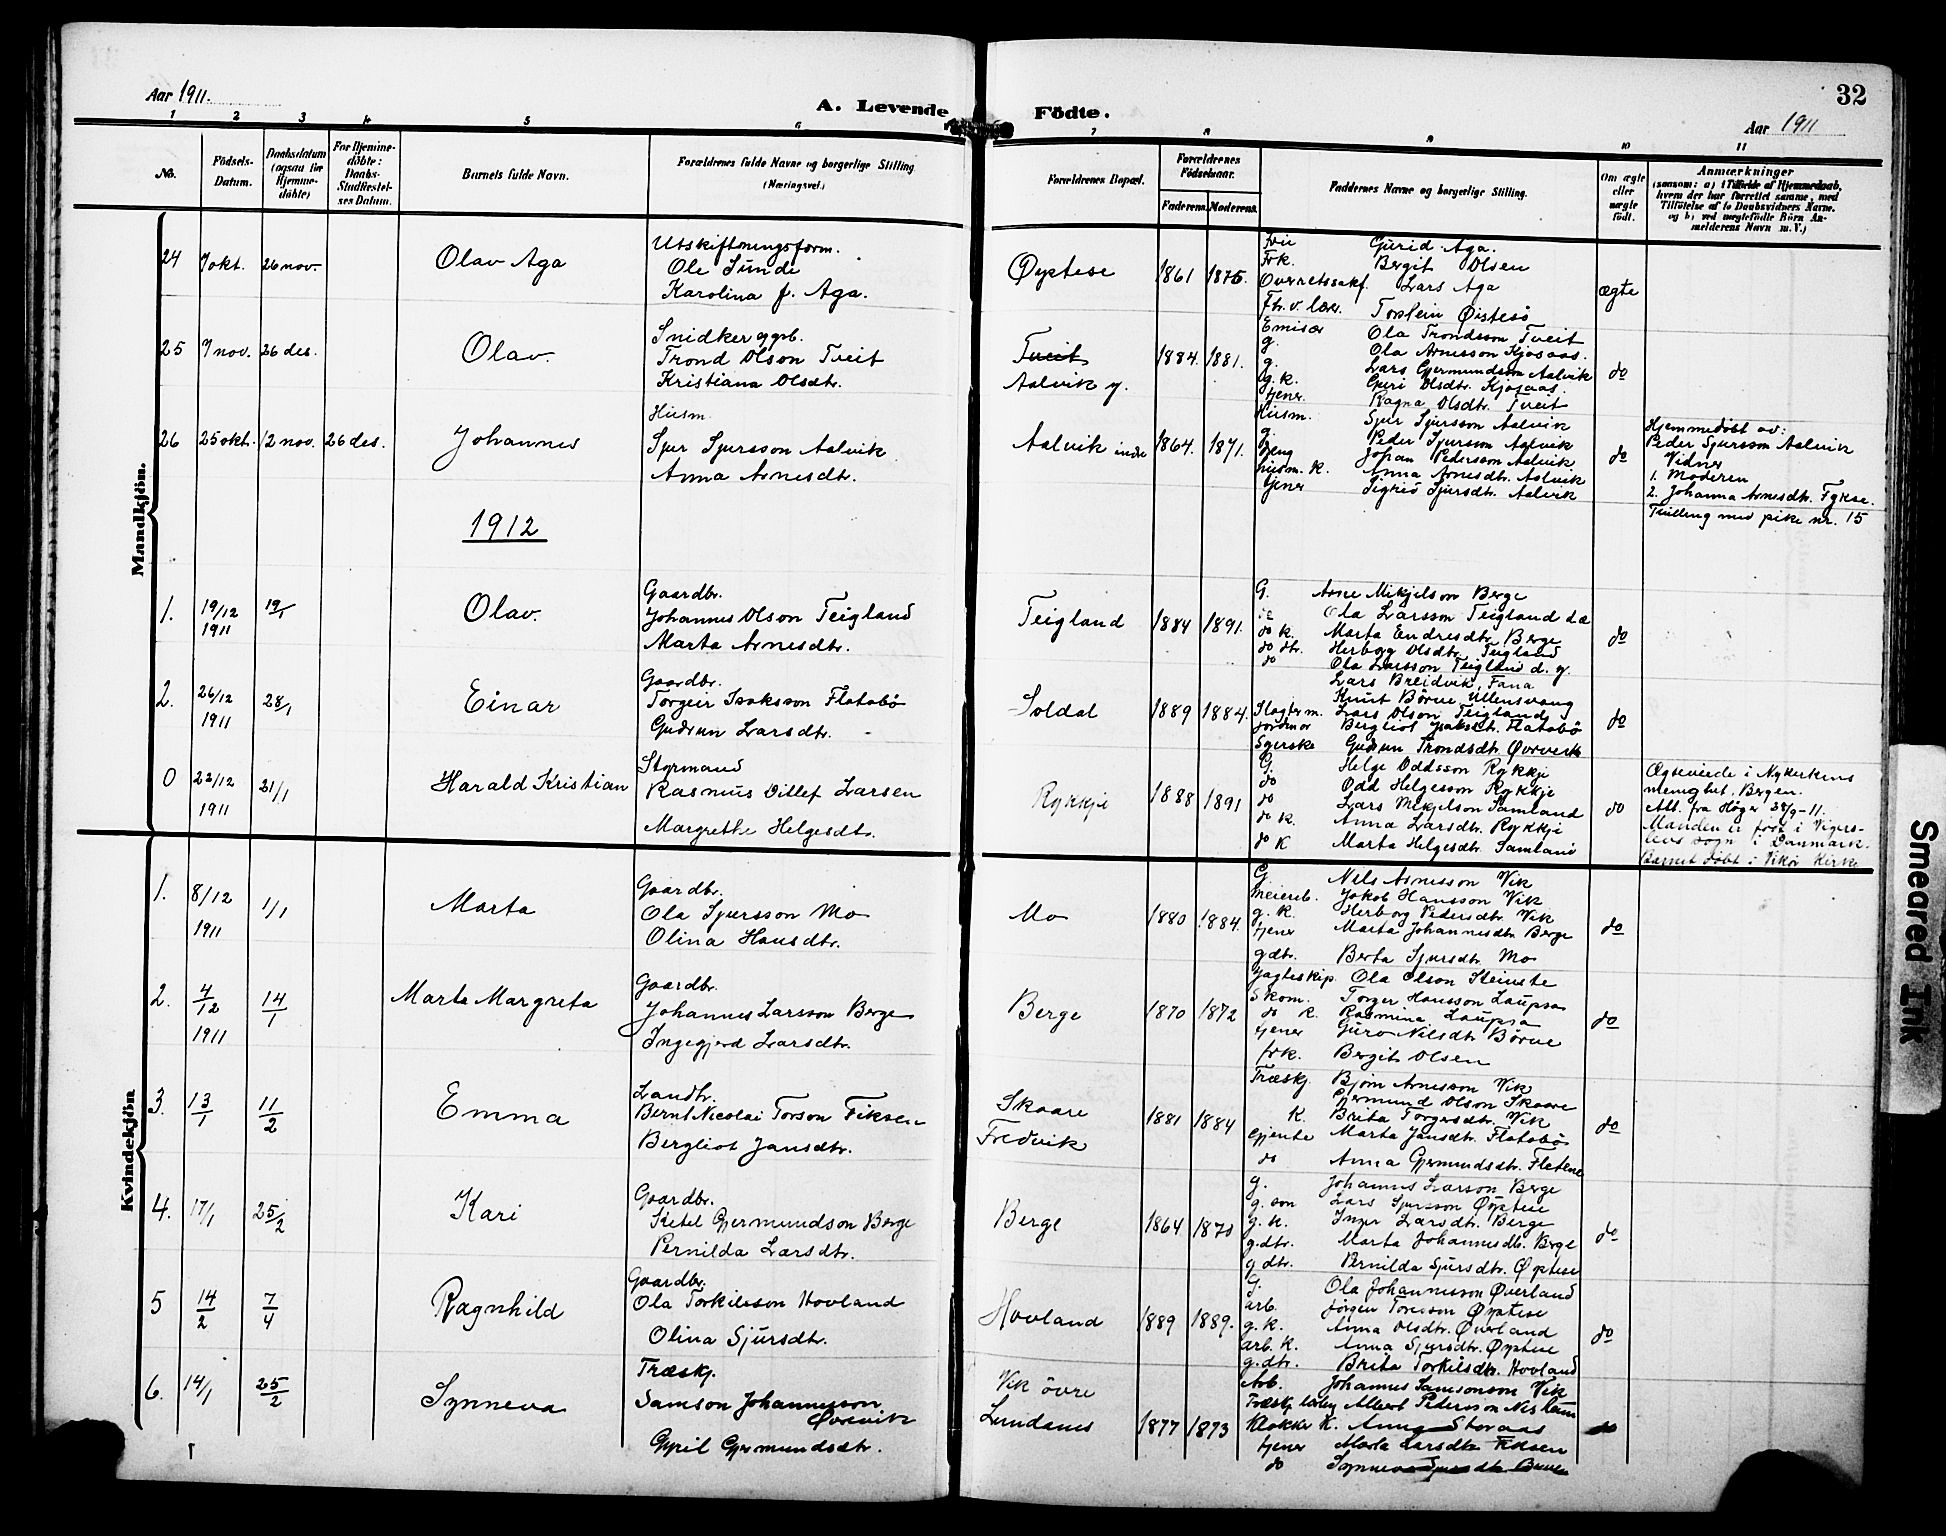 32
Aar 1911.
A. Levende
Födte.
Aar 1911
1 2 3 4 5 6 7 8 9 10 11
No.
Födsels-
Datum.
Daabsdatum
(ogsaa for
Hjemme-
döbte)
For Hjemme-
döbte:
Daabs-
Stadfæstel-
ses Datum.
Barnets fulde Navn.
Forældrenes fulde Navne og borgerlige Stilling
(Næringsvei.)
Forældrenes Bopæl.
Forældrenes
Födselsaar.
Faderens. Moderens.
Faddernes Navne og borgerlige Stilling.
Om ægte
eller
uægte
födt.
Anmærkninger
(saasom: a) i Tilfælde af Hjemmedaab,
hvem der har forrettet samme, med
Tilföielse af to Daabsvidners Navne.
og b) ved uægtefödte Börn An-
melderens Navn m. V.)
Mandkjön.
24 7 okt. 26 nov. Olav Aga
Utskiftningsform.
Ole Sunde
Karolina f. Aga.
Øystese 1861 1875.
Gurid Aga.
Frk. Bergit Olsen
Overretssakf. Lars Aga
Torstein Øistesö
ægte
25 7 nov. 26 des. Olav.
Snidker ggrb.
Trond Olson Tveit
Kristiana Olsdtr.
Tveit
Aalvik y.
1884. 1881.
Emisær Ola Trondsson Tveit
g. Ola Arnesson Kjosaas.
g. Lars Gjermundson Aalvik
g. k. Guri Olsdtr. Kjosaas.
tjener Ragna Olsdtr. Tveit
do
26 25 okt. 12 nov. 26 des. Johannes
Husm.
Sjur Sjursson Aalvik
Anna Arnesdtr.
Aalvik indre 1864. 1871.
Husm. Sjur Sjursson Aalvik
g. Peder Sjursson Aalvik
Johan Pedersson Aalvik
husm. k. Anna Arnesdtr. Aalvik
tjener Sigrid Sjursdtr. Aalvik
do
Hjemmedöbt av:
Peder Sjursson Aalvik
Vidner
1. Moderen
2. Johanna Arnesdtr. Fykse.
Tvilling med pike nr. 15
1912
1. 19/12 1911 19/1 Olav.
Gaardbr.
Johannes Olson Teigland
Marta Arnesdtr.
Teigland 1884 1891.
G. Arne Mikjelson Berge
do Ola Larsson Teigland d.æ
do k. Marta Endresdtr. Berge
do dtr. Herborg Olsdtr. Teigland
do Ola Larsson Teigland d. y.
do
2. 26/12 1911 28/1 Einar
Gaardbr.
Torgeir Isaksson Flatabö
Gudrun Larsdtr.
Soldal 1889 1884.
Lars Breidvik, Fana
Knut Börve Ullensvang
Slagterm. Lars Olson Teigland
Jordmor Bergliot Flatabö
Syerske Gudrun Trondsdtr. Övrevik
do
0 22/12 1911 21/1 Harald Kristian
Styrmand
Rasmus Ditlef Larsen
Margrethe Helgesdtr.
Rykkje 1888 1891
G. Helge Oddsson Rykkje
do Odd Helgesson Rykkje
do Lars Mikjelson Samland
do k. Anna Larsdtr. Rykkje
do K Marta Helgesdtr. Samland
do
Ægteviede i Nykirkens
menighet, Bergen.
Att. fra Höyer 28/9-11.
Manden er född i Vigers-
levs sogn i Danmark.
Barnet döbt i Vikör Kirke
Kvindekjön
1. 8/12 1911 1/1 Marta
Gaardbr.
Ola Sjursson Mo
Olina Hansdtr.
Mo 1880 1884.
G. Nels Arnesson Vik
Meierib. Jakob Hansson Vik
g. k. Herborg Pedersdtr. Vik
tjener Marta Johannesdtr. Berge
gdtr. Berta Sjursdtr. Mo
do
2. 4/12 1911 14/1 Marta Margreta
Gaardbr.
Johannes Larsson Berge
Ingegjerd Larsdtr.
Berge 1870 1872
Jagteskip. Ola Olson Steinstø
Skom. Torger Hansson Laupsa
do k. Rasmina Laupsa
tjener Guro Nilsdtr. Börve
frk. Bergit Olsen
do
3. 13/1 11/2 Emma
Landh.
Bernt Nicolai Torson Fiksen
Bergliot Jansdtr.
Skaare
Fredvik
1881 1884
Træskj. Bjørn Arnesson Vik
Gjermund Olson Skaare
K. Brita Torgersdtr. Vik
Gjente Marta Jansdtr. Flatabö
do Anna Gjermundsdtr. Fletene
do
4. 17/1 25/2 Kari
Gaardbr.
Ketel Gjermundson Berge
Pernilda Larsdtr.
Berge 1864 1870
g. Johannes Larson Berge
g. son Lars Sjursson Øystese
g. k. Inger Larsdtr. Berge
g.dtr. Marta Johannesdtr. Berge
g dtr. Pernilda Sjursdtr. Øystese
do
5 14/2 7/4 Ragnhild
Gaardbr.
Ola Torkilsson Hovland
Olina Sjursdtr.
Hovland 1889 1889.
G. Ola Johannesson Överland
arb. Jörgen Torsson Øystese
g. k. Anna Olsdtr. Överland
arb. k. Anna Sjursdtr. Øystese
g.dtr. Brita Torkilsdtr. Hovland
do
6. 14/1 25/2 Synneva
Træskj.
Samson Johannesson
Övrevik
Gyril Gjermundsdtr.
Vik övre
Lundanes
1877 1873
Arb. Johannes Samsonson Vik
Albert Pederson
Klokker K. Anna Storaas
tjener Marta Larsdtr. Fiksen
do Synneva Sjursdtr.
do
Smeared Ink